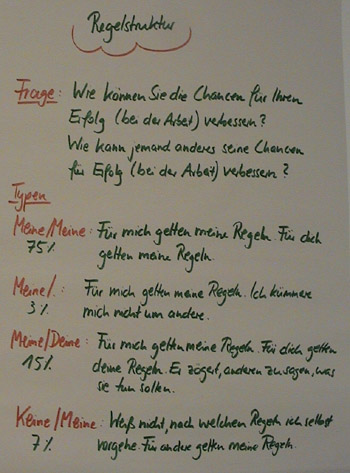 Regelstruktur
Frage: Wie können Sie die Chancen für Ihren
Erfolg (bei der Arbeit) verbessern?
Wie kann jemand anderes seine Chancen
für Erfolg (bei der Arbeit) verbessern?
Typen
Meine/Meine: Für mich gelten meine Regeln. Für dich
75% gelten meine Regeln.
Meine/.: Für mich gelten meine Regeln. Ich kümmere
3% mich nicht um andere.
Meine/Deine: Für mich gelten meine Regeln. Für dich gelten
15% deine Regeln. Er zögert, anderen zu sagen, was
sie tun sollen.
Keine/Meine: Weiß nicht, nach welchen Regeln ich selbst
7% vorgehe. Für andere gelten meine Regeln.